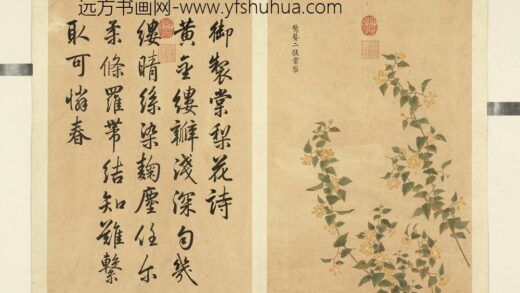 远方书画网-www.yfshuhua.com
棠梨
御製棠梨花詩
黄金縷瓣淺深勻幾
縷晴絲染麴塵任尔
柔條羅帶結知難繫
取可憐春